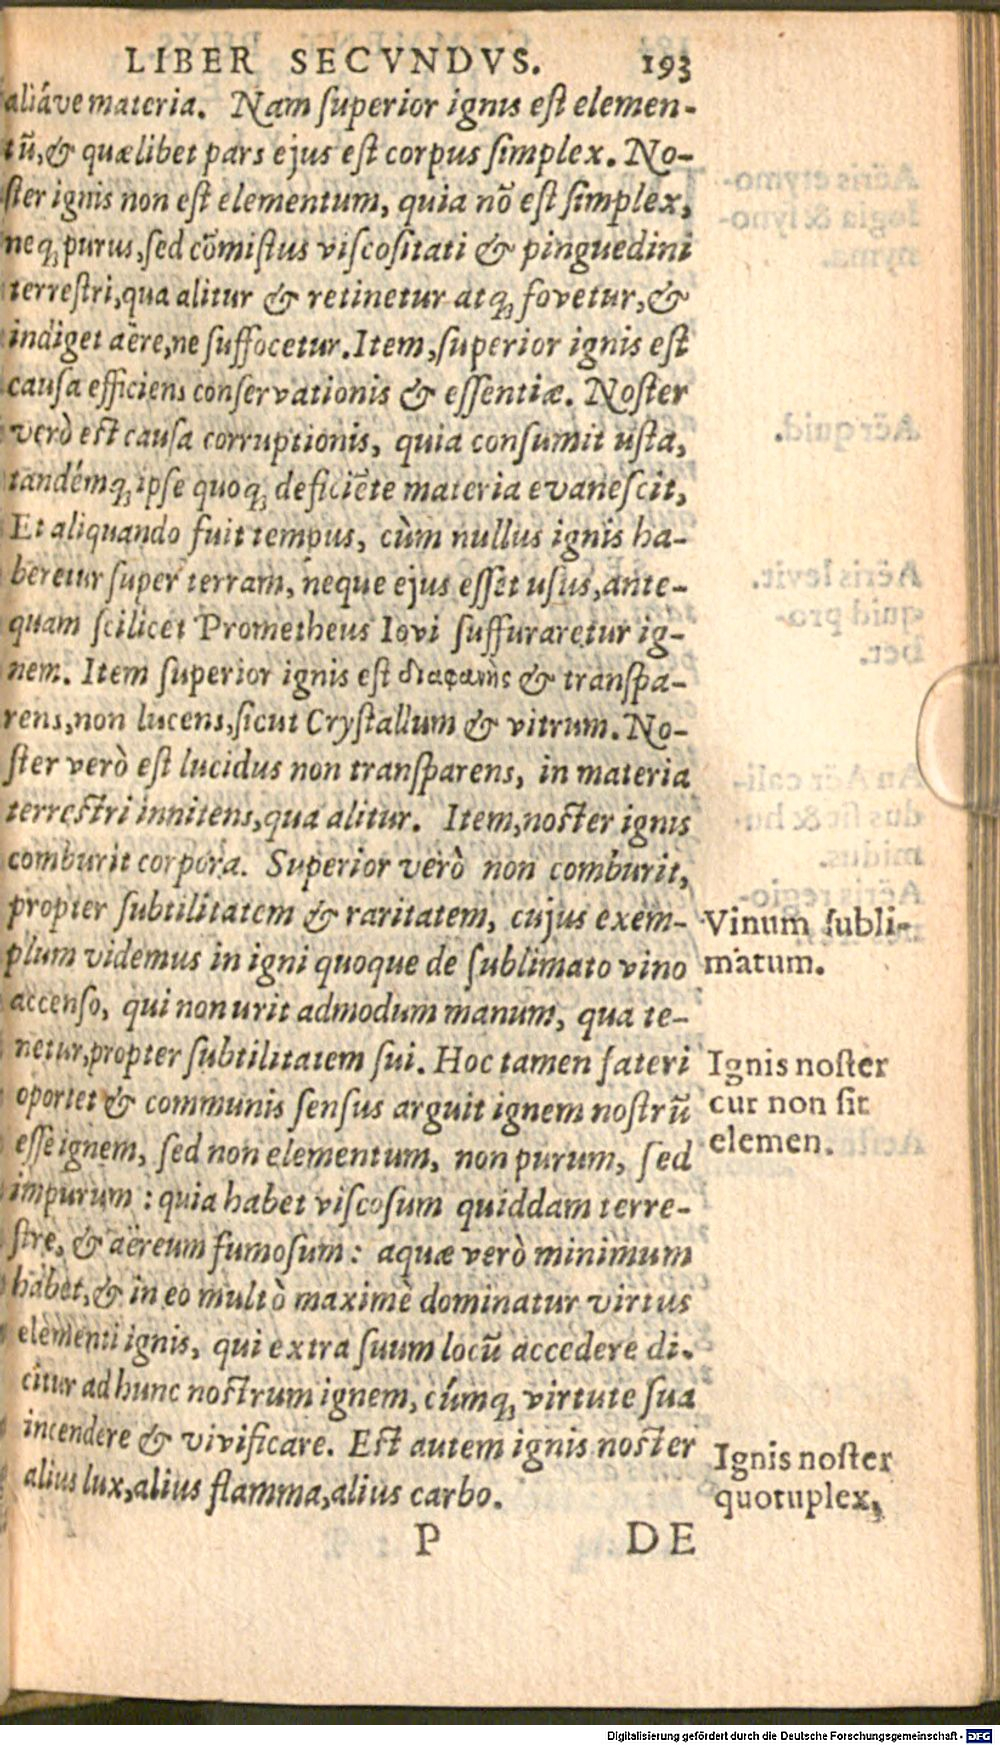 LIBER SECVNDVS. 193
aliáve materia. Nam superior ignis est elemen-
tũ, & quælibet pars ejus est corpus simplex. No-
ster ignis non est elementum, quia nõ est simplex,
neq, purus, sed cõmistus viscositati & pinguedini
terrestri, qua alitur & retinetur atq, fovetur, &
indiget aëre, ne suffocetur. Item, superior ignis est
causa efficiens conservationis & essentiæ. Noster
verò est causa corruptionis, quia consumit usta,
tandémq, ipse quoq, deficiẽte materia evanescit,
Et aliquando fuit tempus, cùm nullus ignis ha-
beretur super terram, neque ejus esset usus, ante-
quam scilicet Prometheus Iovi suffuraretur ig-
nem. Item superior ignis est διαφανὴς & transpa-
rens, non lucens, sicut Crystallum & vitrum. No-
ster verò est lucidus non transparens, in materia
terrestri innitens, qua alitur. Item, noster ignis
comburit corpora. Superior verò non comburit,
propter subtilitatem & raritatem, cujus exem-
plum videmus in igni quoque de sublimato vino
accenso, qui non urit admodum manum, qua te-
netur, propter subtilitatem sui. Hoc tamen fateri
oportet & communis sensus arguit ignem nostrũ
esse ignem, sed non elementum, non purum, sed
impurum: quia habet viscosum quiddam terre-
stre, & aëreum fumosum: aquæ verò minimum
habet, & in eo multò maximè dominatur virtus
elementi ignis, qui extra suum locũ accedere di-
citur ad hunc nostrum ignem, cúmq, virtute sua
incendere & vivificare. Est autem ignis noster
alius lux, alius flamma, alius carbo.
P DE
Vinum subli-
matum.
Ignis noster
cur non sit
elemen.
Ignis noster
quotuplex,
Digitalisierung gefördert durch die Deutsche Forschungsgemeinschaft - DFG